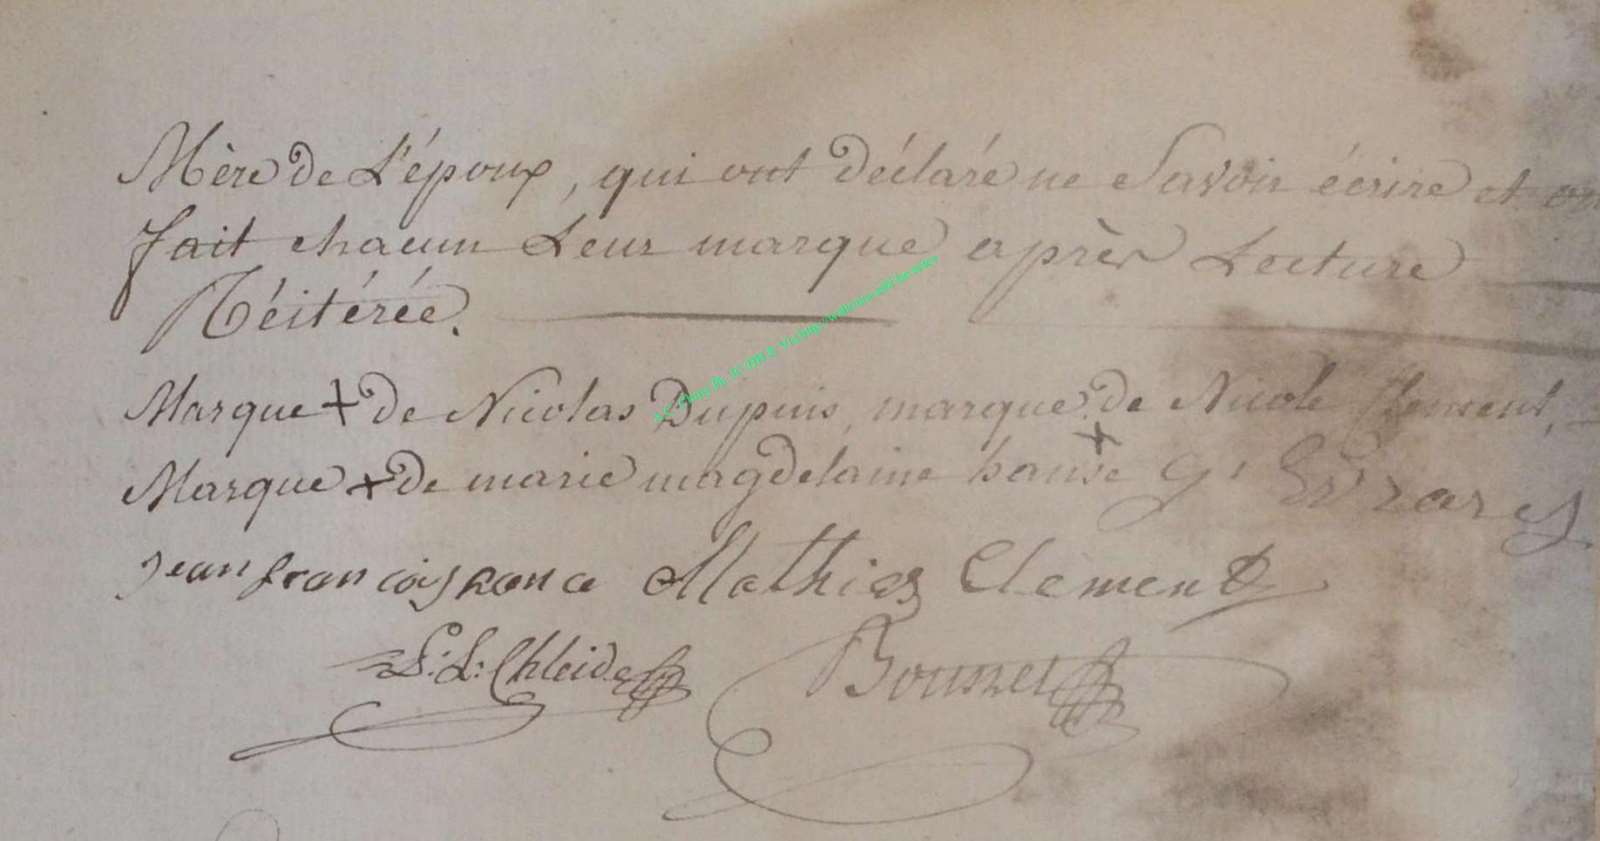 Mère de L'époux, qui ont déclaré ne Savoir écrire et on
fait chacun Leur marque après Lecture
Réitérée.
Marque + de Nicolas Dupuis, marque + de Nicole Clement,
Marque + de marie magdelaine hanse
jean francois hance Mathies Clement
Bournel